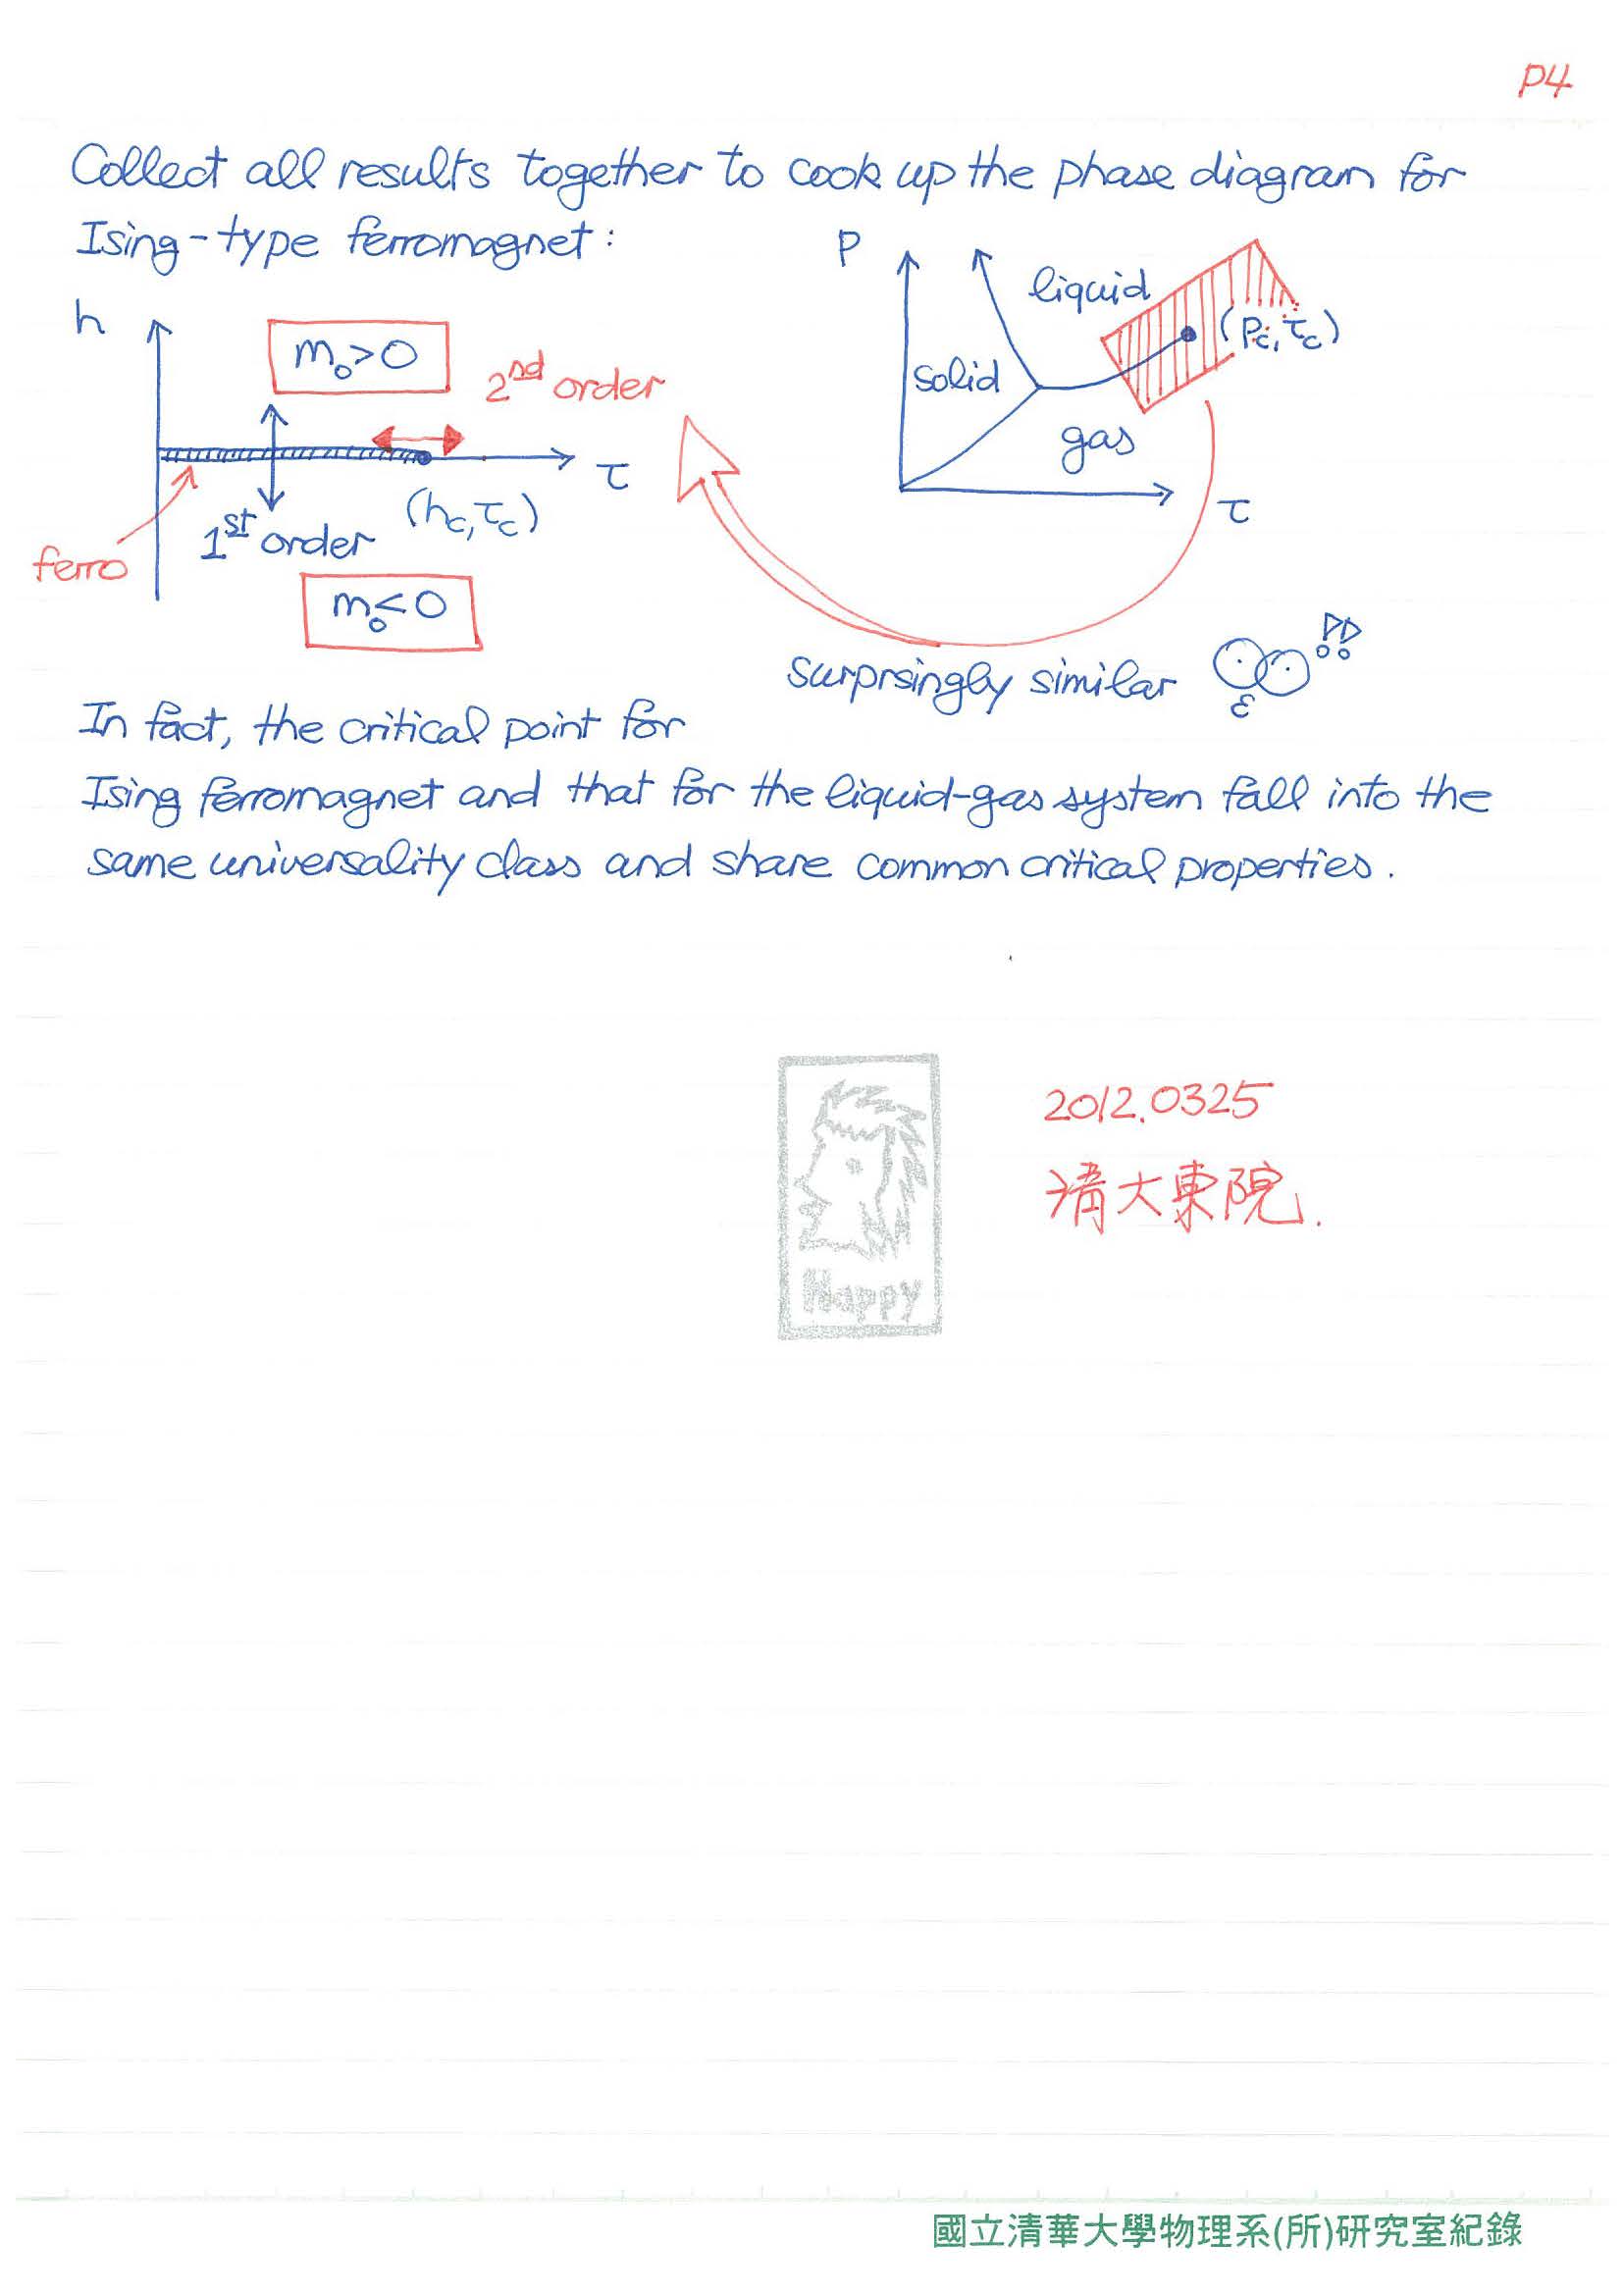 P4
Collect all results together to cook up the phase diagram for
Ising-type ferromagnet:
h
m₀>0
2nd order
τ
(hc, τc)
1st order
ferro
m₀<0
P
liquid
(Pc, τc)
solid
gas
τ
surprsingly similar
In fact, the critical point for
Ising ferromagnet and that for the liquid-gas system fall into the
same universality class and share common critical properties.
Happy
2012.0325
清大東院.
國立清華大學物理系(所)研究室紀錄